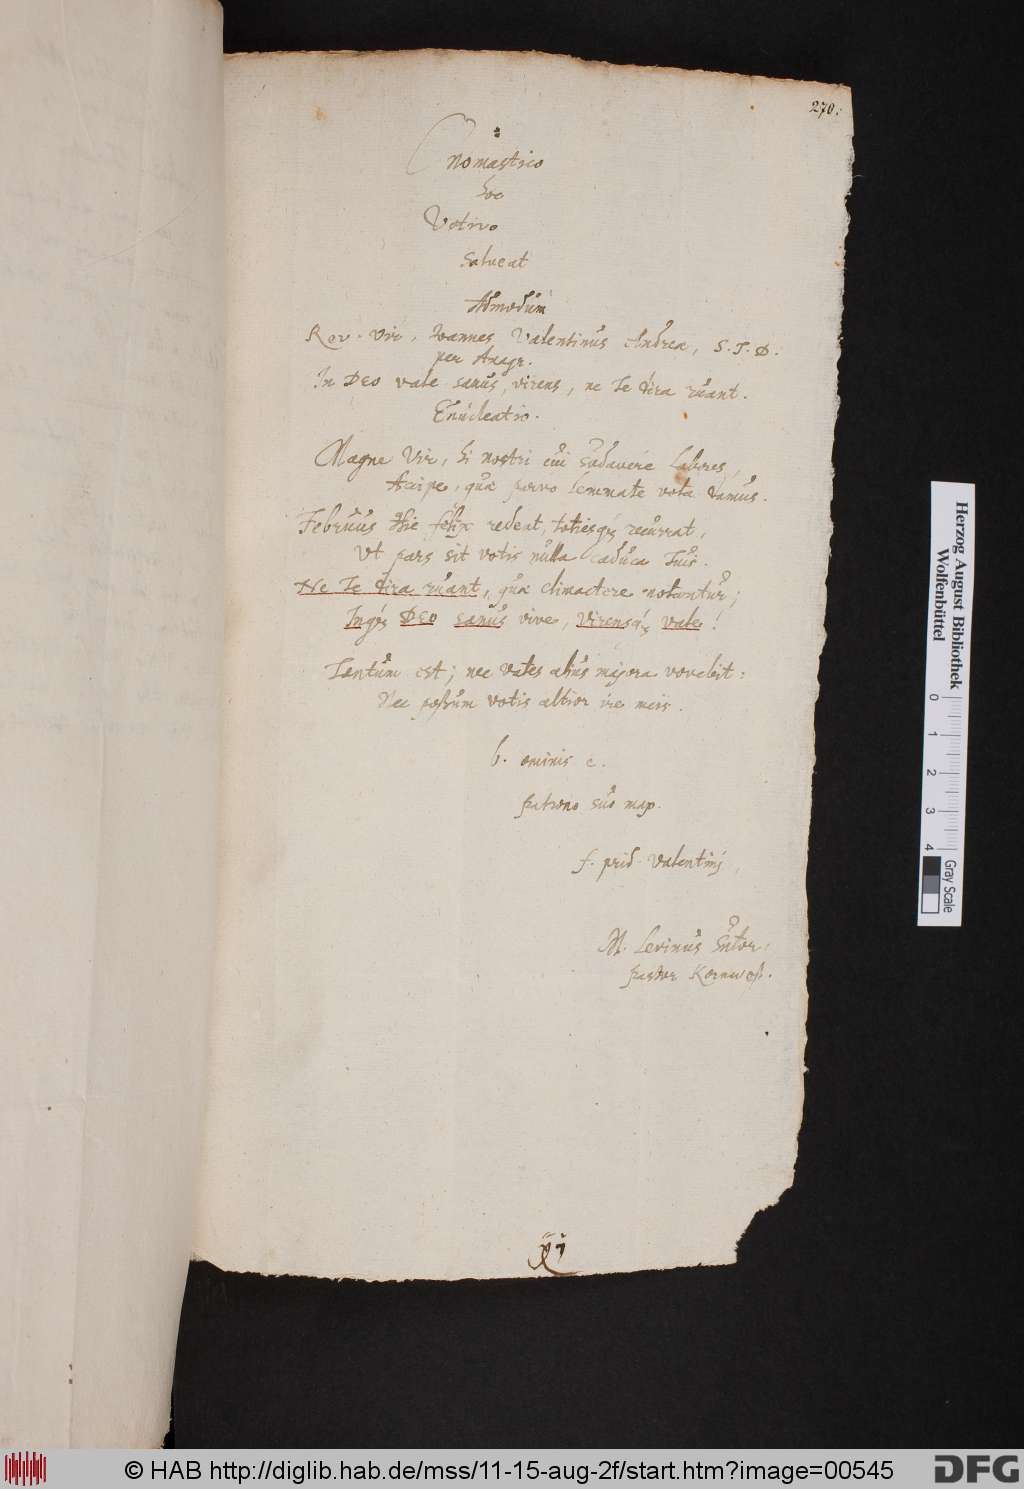 270.
Onomastico
hoc
Votivo
salveat
Admodum
Rev. Vir, Ioannes Valentinus Andreæ, S. T. D.
per Anagr.
In DEO vale sanus, virens, ne Te dira ruant.
Enucleatio.
Magne Vir, hi nostri cui sudavere labores,
Accipe, quæ parvo lemmate vota damus.
Februus hic felix redeat, totiesq; recurrat,
Ut pars sit votis nulla caduca Tuis.
Ne Te dira ruant, quæ climactere notantur;
Inq; DEO sanus vive, virensq; vale!
Tantum est; nec vates alius majora vovebit:
Nec possum votis altior ire meis.
b. ominis c.
patrono suo
f. prid. Valentinj
M. Levinus Sutor,
pastor Kornwest.
Herzog August Bibliothek
Wolfenbüttel
0 1 2 3 4
Gray Scale
© HAB http://diglib.hab.de/mss/11-15-aug-2f/start.htm?image=00545
DFG